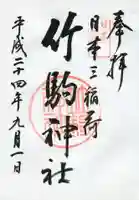 奉拝
日本三稲荷
竹駒神社
平成二十四年九月一日